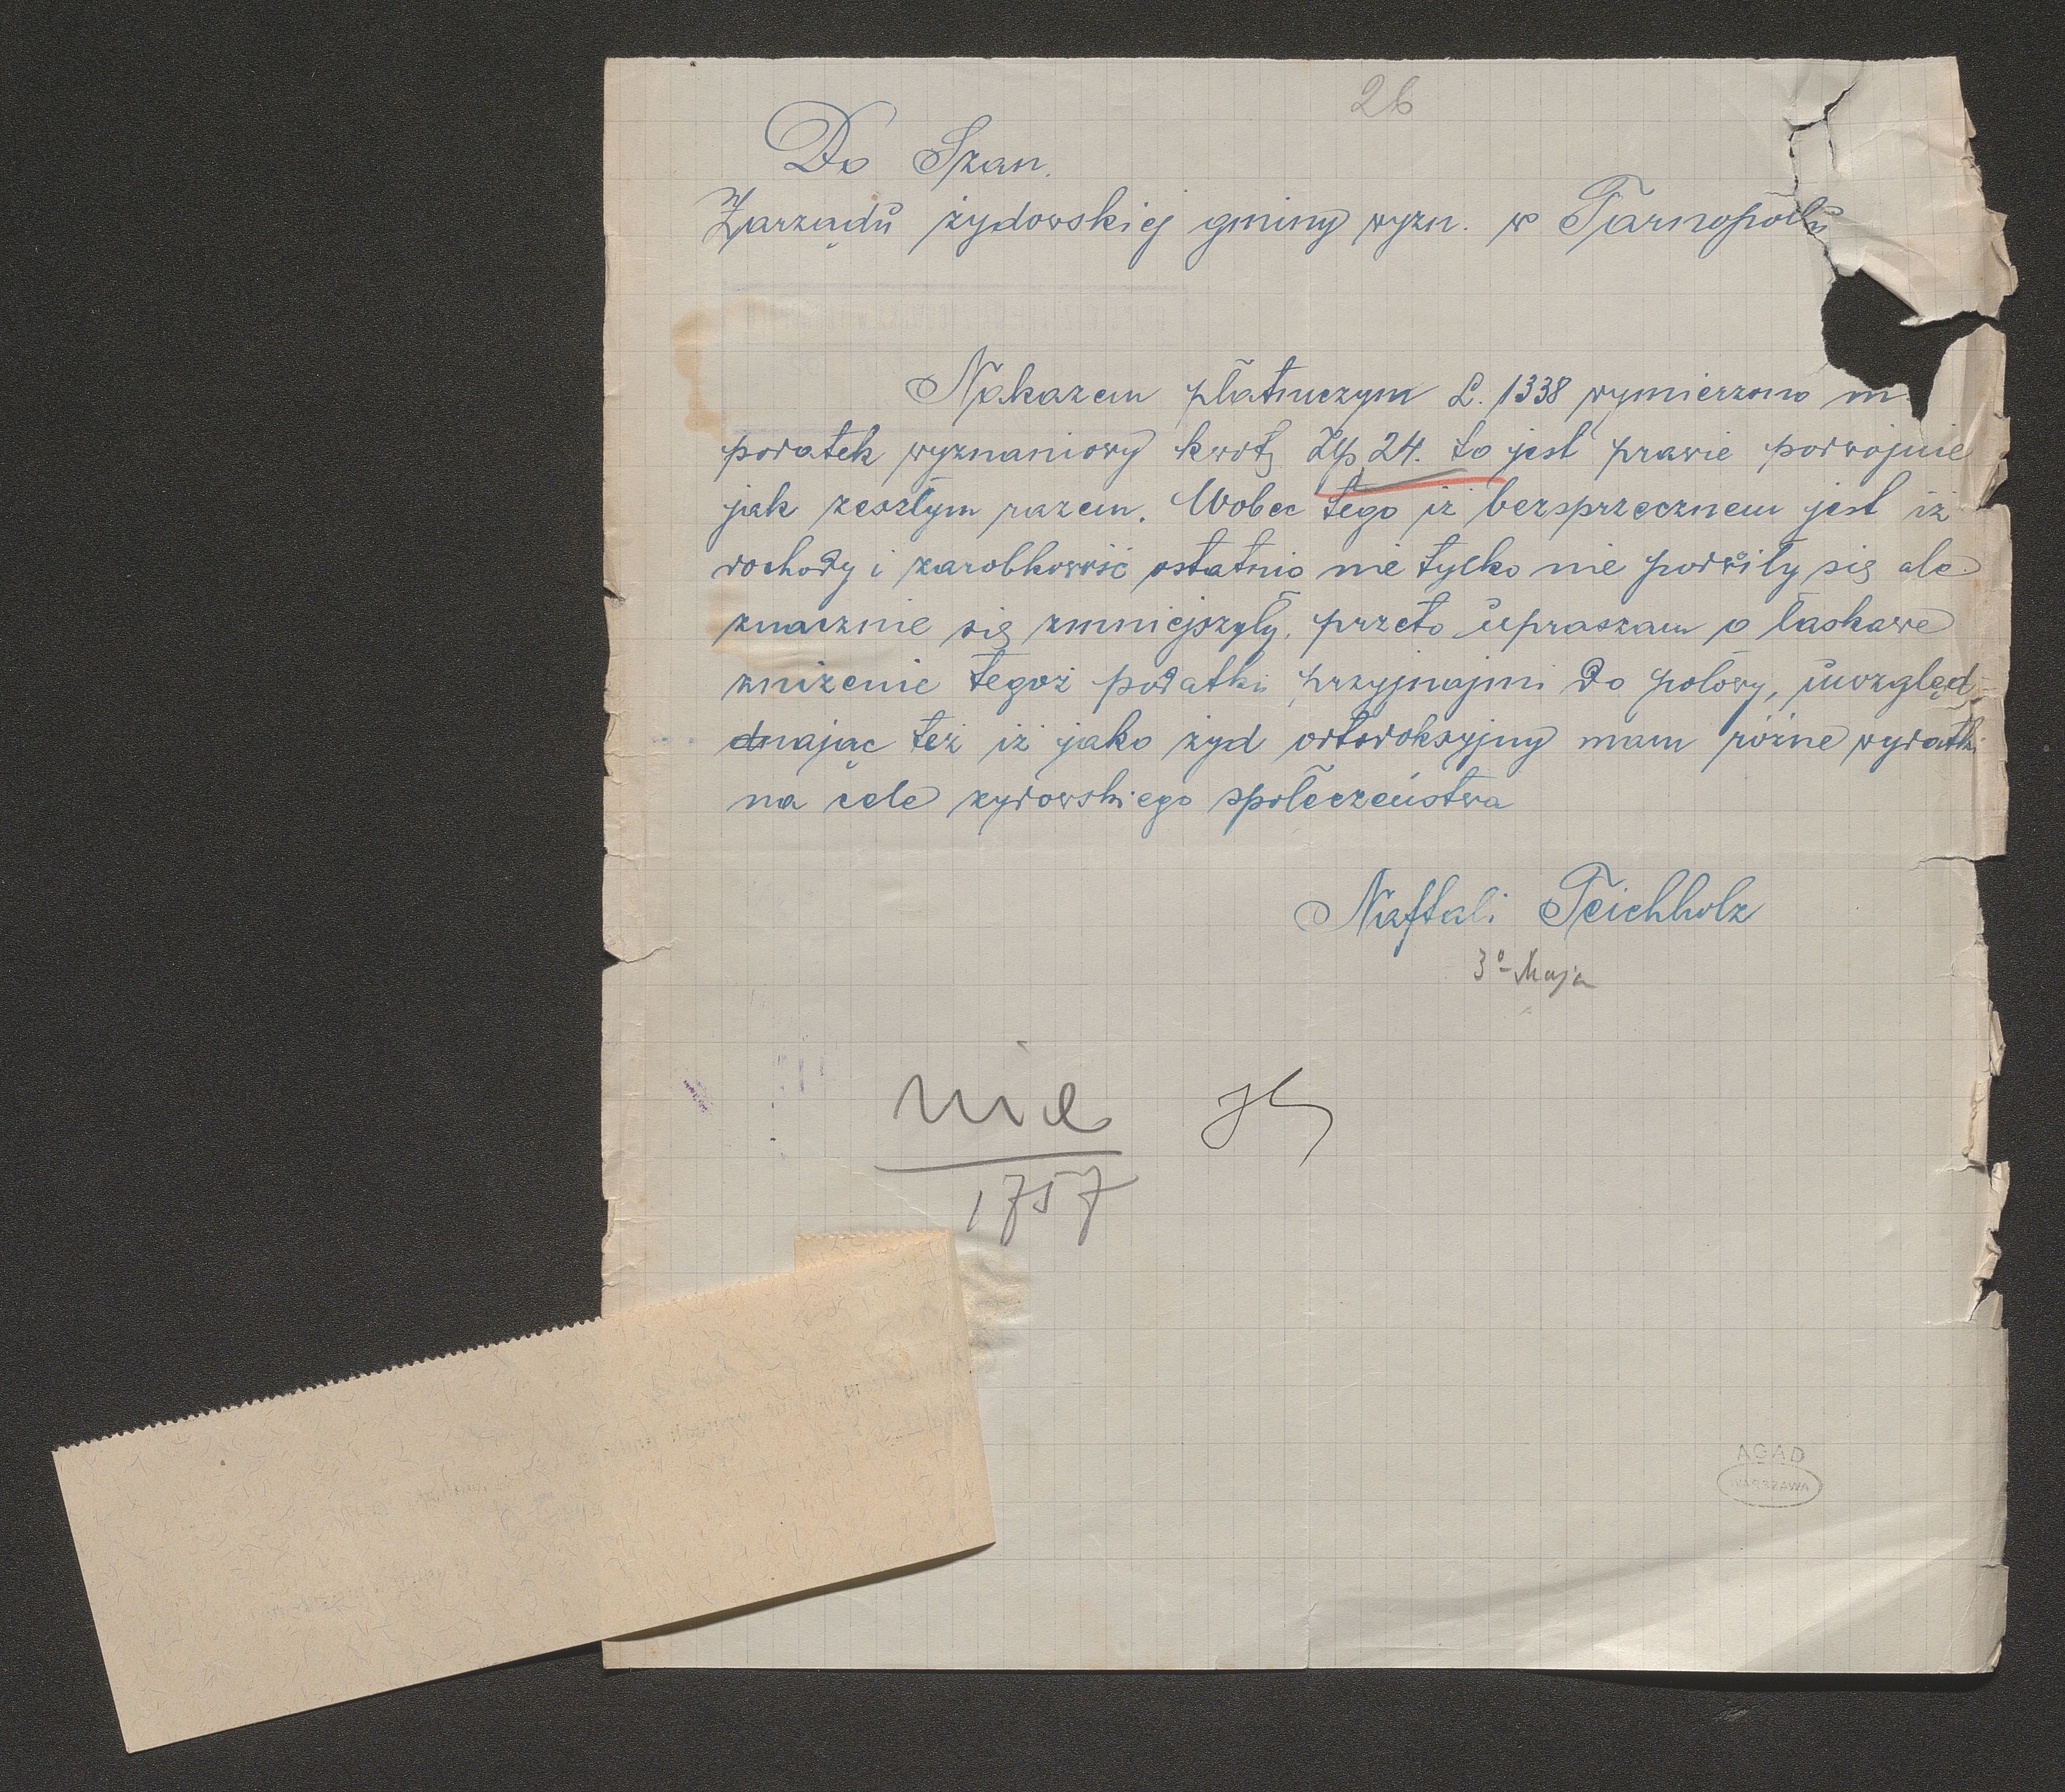 26
Do Szan.
Zarządu żydowskiej gminy wyzn. w Tarnopolu
Nakazem płatniczym L. 1338 wymierzono
podatek wyznaniowy kwotę Złp 24. to jest prawie podwójnie
jak zeszłym razem. Wobec tego iż bezsprzecznem jest iż
dochody i zarobkowość ostatnio nie tylko nie się ale
znacznie się zmniejszyły, przeto upraszam o łaskawe
zniżenie tegoż podatku przyjnajmi do połowy, uwzględ-
dnając też iż jako żyd ortodoksyjny mam różne wydatki
na cele żydowskiego społeczeństwa
Naftali Teichholz
3º Maja
nie
1757
AGAD
WARSZAWA